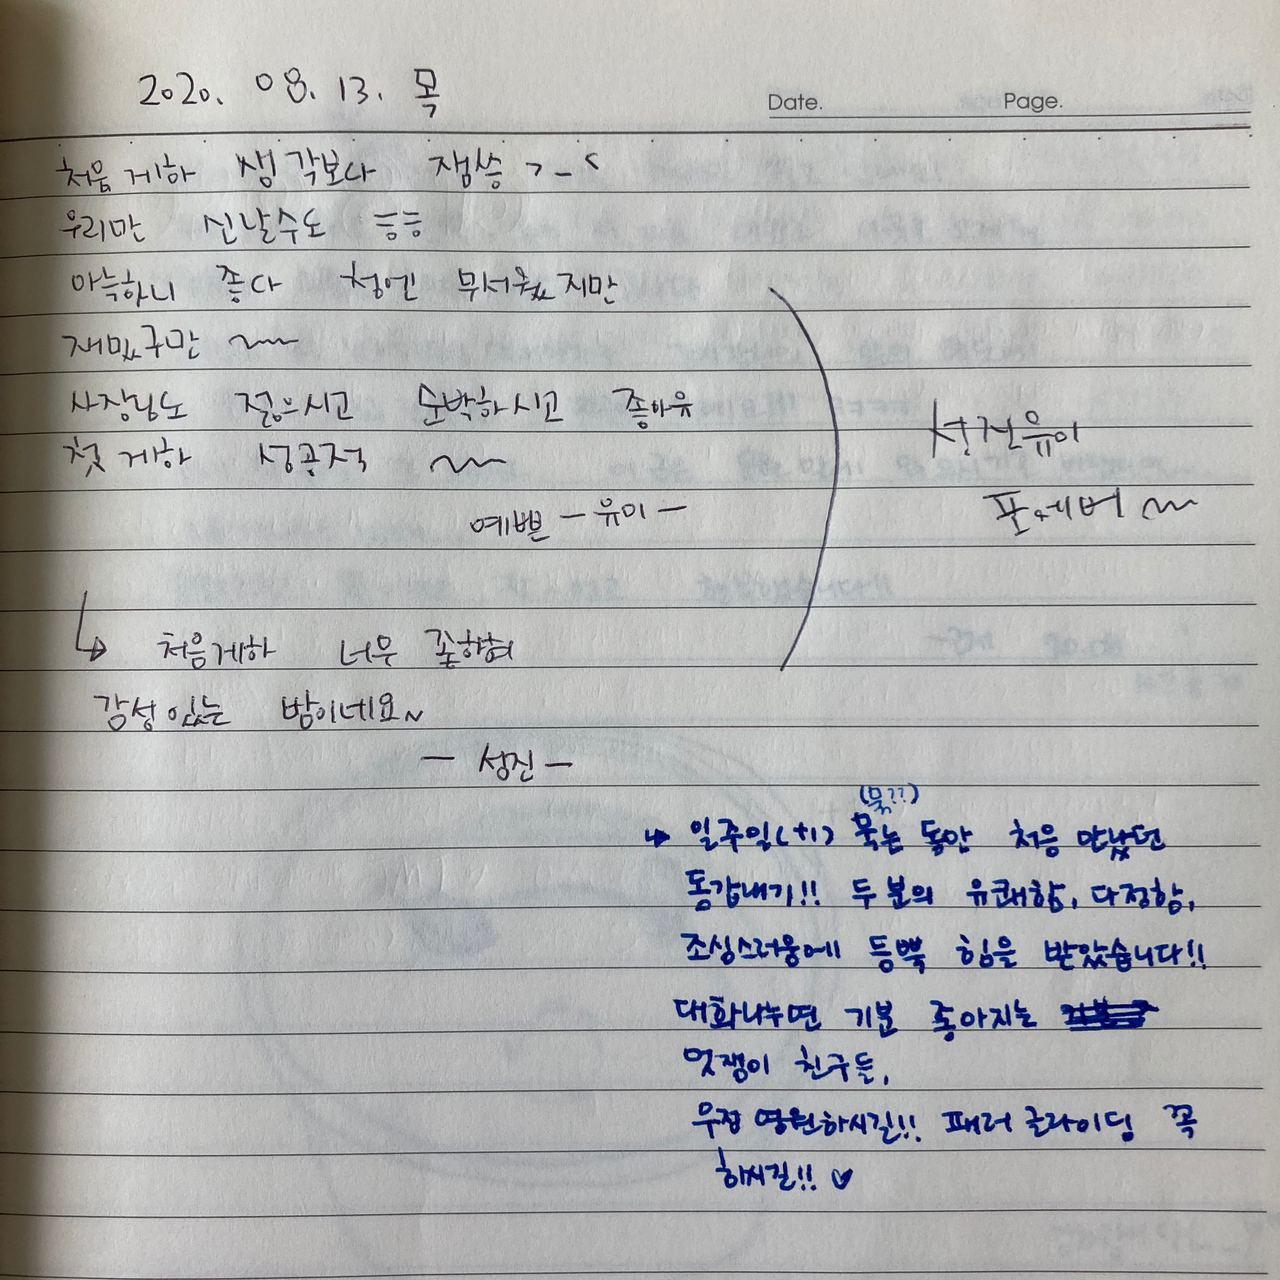 2020. 08. 13. 목
Date. Page.
처음 게하 생각보다 잼씀 >_<
우리만 신날수도 ㅎㅎ
아늑하니 좋다 첨엔 무서웠지만
재밌구만 ~~
사장님도 젊으시고 순박하시고 좋아유
첫 게하 성공적 ~~
예쁜 - 유이 -
유이
포에버 ~~
↳ 처음게하 너무
감성있는 밤이네요~
- 성진 -
(묵??)
→ 일주일(+1) 묵는 동안 처음 만났던
동갑내기!! 두 분의 유쾌함, 다정함,
조심스러움에 듬뿍 힘을 받았습니다!!
대화나누면 기분 좋아지는
멋쟁이 친구들,
우정 영원하시길!! 패러글라이딩 꼭
하시길!! ♡